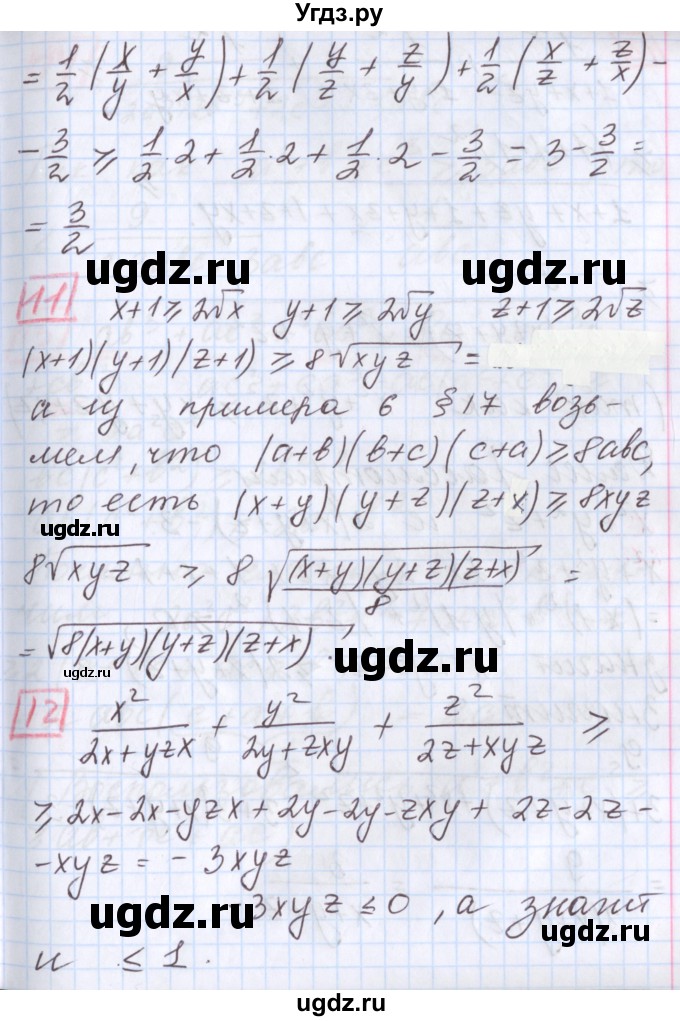 Угдз.ру
= 1/2 (x/y + y/x) + 1/2 (y/z + z/y) + 1/2 (x/z + z/x) -
- 3/2 ⩾ 1/2 · 2 + 1/2 · 2 + 1/2 · 2 - 3/2 = 3 - 3/2 =
= 3/2
ugdz.ru
ugdz.ru
11 x+1 ⩾ 2√x y+1 ⩾ 2√y z+1 ⩾ 2√z
(x+1)(y+1)(z+1) ⩾ 8√xyz =
а из примера 6 §17 возь-
мем, что (a+b)(b+c)(c+a) ⩾ 8abc,
то есть (x+y)(y+z)(z+x) ⩾ 8xyz
ugdz.ru
8√xyz ⩾ 8 √((x+y)(y+z)(z+x)/8) =
= √8(x+y)(y+z)(z+x)
ugdz.ru
ugdz.ru
12 x²/(2x+yzx) + y²/(2y+zxy) + z²/(2z+xyz) ⩾
⩾ 2x-2x-yzx+2y-2y-zxy+ 2z-2z-
-xyz = - 3xyz
3xyz ≤ 0, а значит
ugdz.ru
ugdz.ru
и ≤ 1.
ugdz.ru